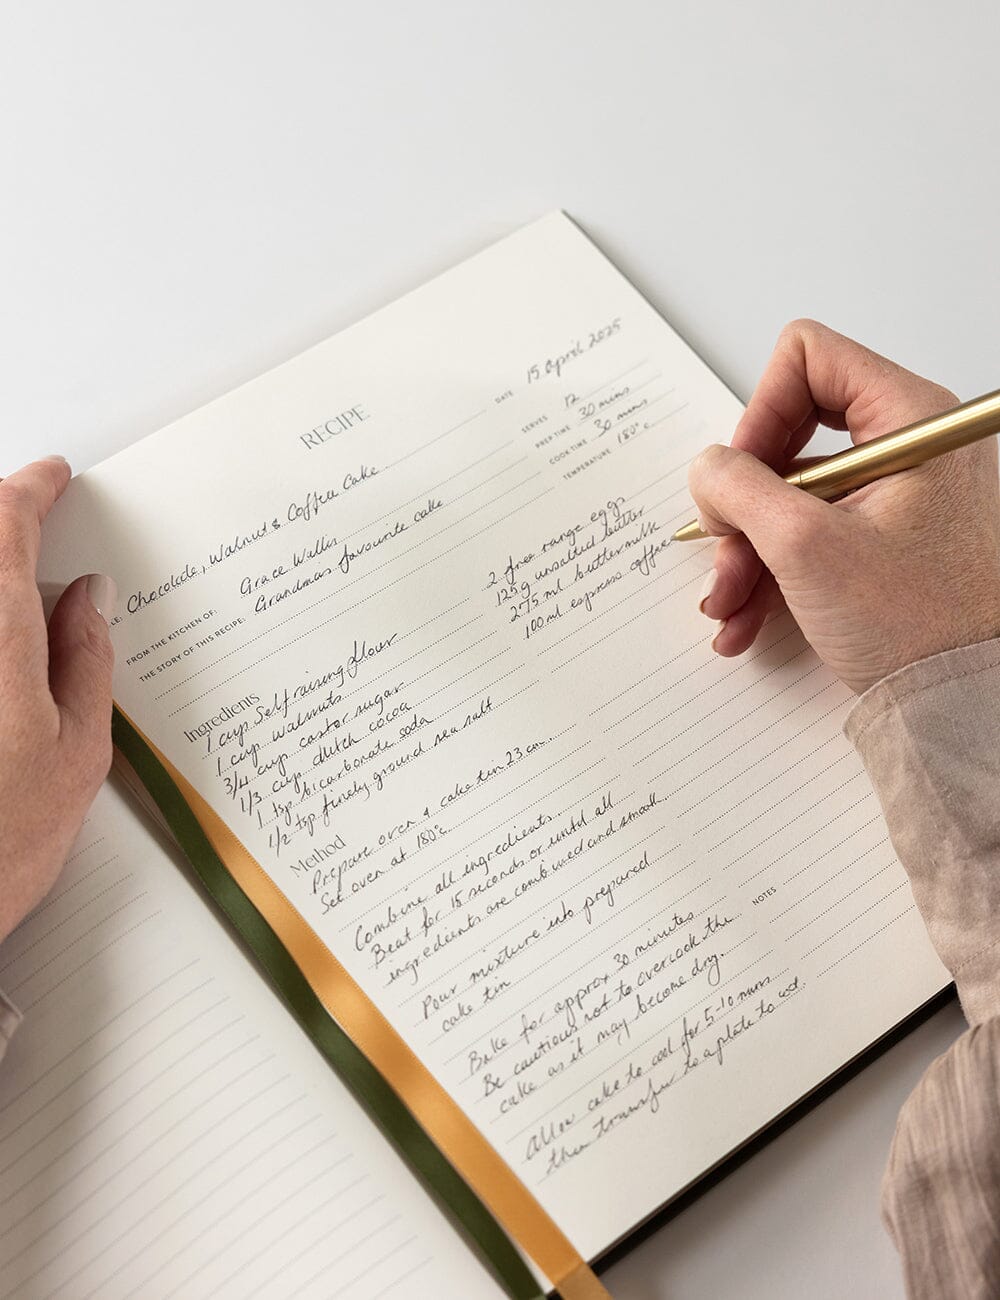 RECIPE
DATE 15 April 2025
LE: Chocolate, Walnut & Coffee Cake
SERVES 12
PREP TIME 30 mins
COOK TIME 30 mins
TEMPERATURE 180°c
FROM THE KITCHEN OF: Grace Wells
THE STORY OF THIS RECIPE: Grandmas favourite cake
Ingredients
1 cup Self raising flour
1 cup walnuts
3/4 cup castor sugar
1/3 cup dutch cocoa
1 tsp bicarbonate soda
1/2 tsp finely ground sea salt
2 free range eggs
125g unsalted butter
275ml buttermilk
100ml espresso coffee
Method
Prepare oven & cake tin 23 cm.
Set oven at 180°c
Combine all ingredients
Beat for 15 seconds or until all
ingredients are combined and smooth.
Pour mixture into prepared
cake tin
Bake for approx 30 minutes
Be cautious not to overcook the
cake as it may become dry.
Allow cake to cool for 5-10 mins
then transfer to a plate to cool.
NOTES